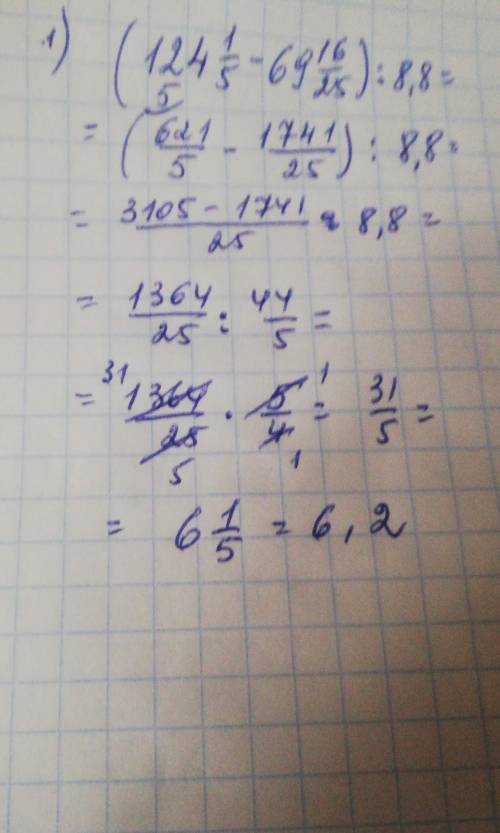 1) (124 1/5 - 69 16/25) : 8,8 =
5
= (621/5 - 1741/25) : 8,8 =
= (3105 - 1741)/25 : 8,8 =
= 1364/25 : 44/5 =
31 1
= 1364/25 · 5/4 = 31/5 =
5 1
= 6 1/5 = 6,2